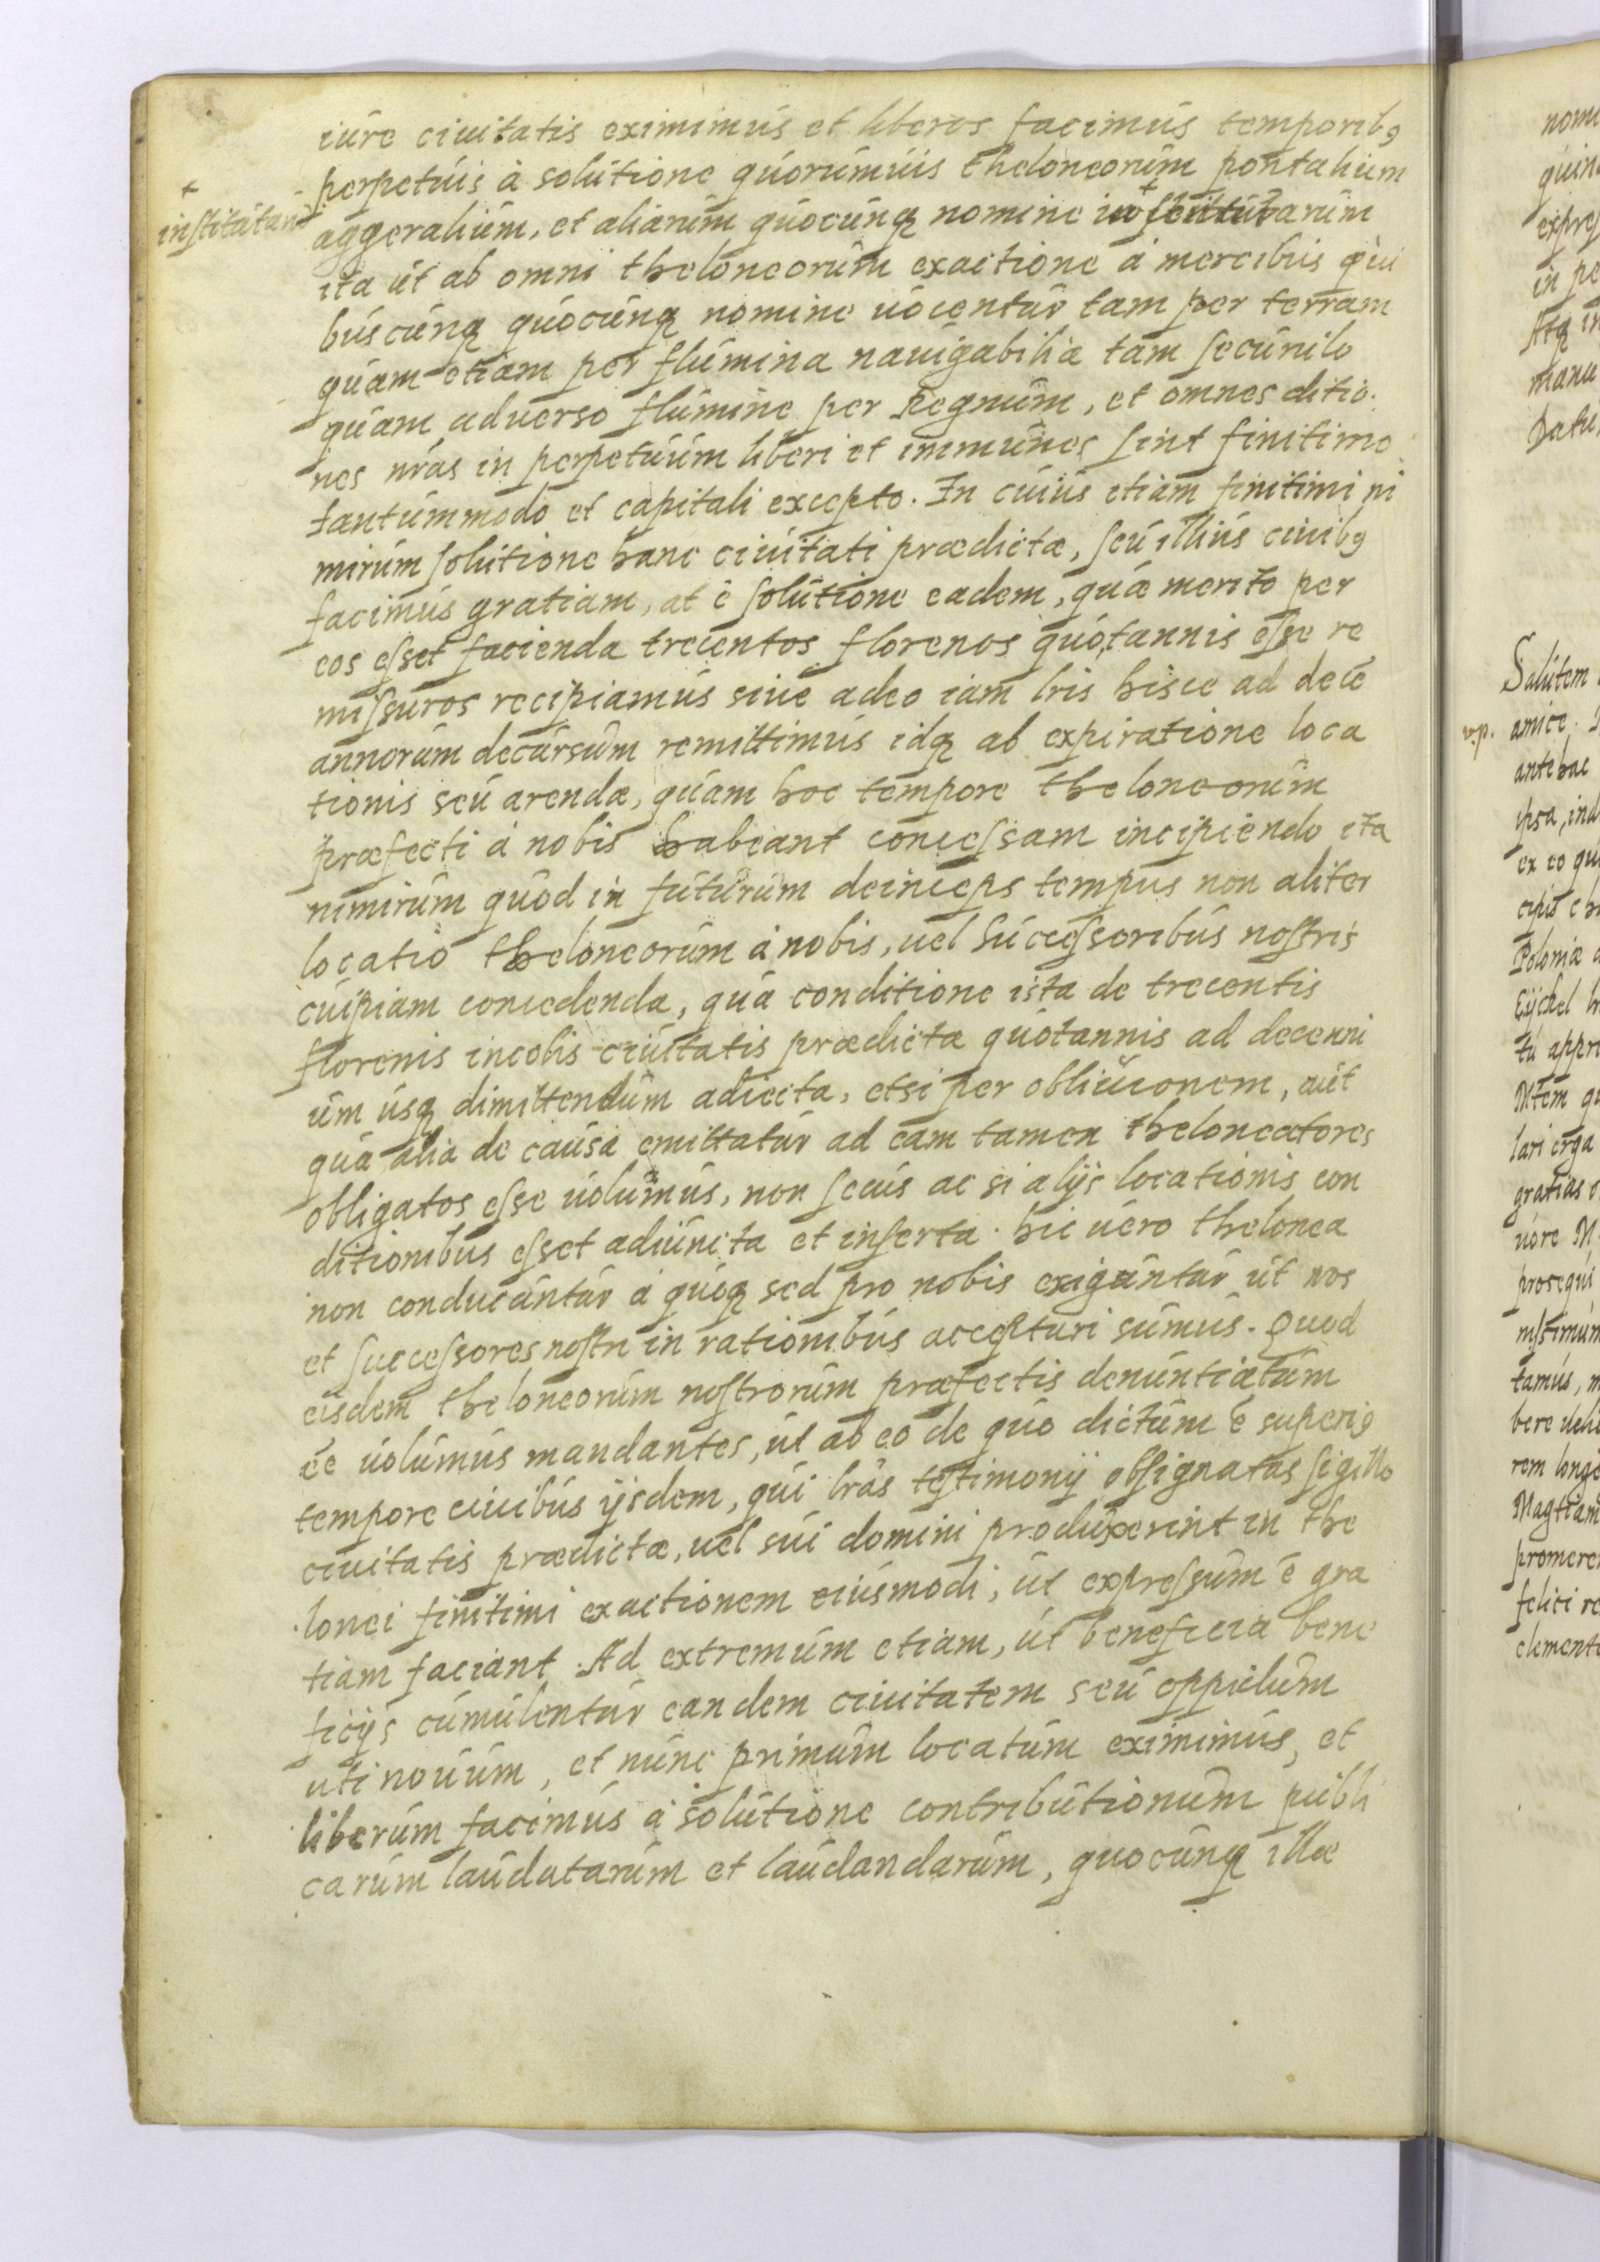 iure ciuitatis eximimus et liberos facimus temporibꝫ
perpetuis à solutione quorumuis theloneorum pontalium
+
institutarũ
aggeralium, et aliarum quocunqꝫ nomine
ita ut ab omni theloneorum exactione à mercibus qui
buscunqꝫ quocunqꝫ nomine uocentur tam per terram
quam etiam per flumina nauigabilia tam secundo
quam aduerso flumine per Regnum, et omnes ditio
nes nrãs in perpetuum liberi et immunes sint finitimo
tantummodo et capitali excepto. In cuius etiam finitimi ni
mirum solutione hanc ciuitati prædictæ, seu illius ciuibꝫ
facimus gratiam, at è solutione eadem, quæ merito per
eos esset facienda trecentos florenos quotannis esse re
missuros recipiamus siue adeo iam lris hisce ad decẽ
annorum decursum remittimus idqꝫ ab expiratione loca
tionis seu arendæ, quam hoc tempore theloneorum
præfecti à nobis habeant concessam incipiendo ita
nimirum quod in futurum deinceps tempus non aliter
locatio theloneorum à nobis, uel Successoribus nostris
cuipiam concedenda, quà conditione ista de trecentis
florenis incolis ciuitatis prædictæ quotannis ad decenni
um usqꝫ dimittendum adiecta, etsi per obliuionem, aut
qua alia de causa emittatur ad eam tamen theloneatores
obligatos esse uolumus, non secus ac si alijs locationis con
ditionibus esset adiuncta et inserta. hic uero thelonea
non conducantur à quoqꝫ sed pro nobis exigantur ut nos
et successores nostri in rationibus accepturi sumus. Quod
eisdem theloneorum nostrorum præfectis denuntiatum
eẽ uolumus mandantes, ut ab eo de quo dictum ẽ superiꝫ
tempore ciuibus ijsdem, qui lrãs testimonij obsignatas sigillo
ciuitatis prædictæ, uel sui domini produxerint in the
lonei finitimi exactionem eiusmodi, ut expressum ẽ gra
tiam faciant. Ad extremum etiam, ut beneficia bene
ficijs cumulentur eandem ciuitatem seu oppidum
uti nouum, et nunc primum locatum eximimus, et
liberum facimus à solutione contributionum publi
carum laudatarum et laudandarum, quocunqꝫ illæ
Salutem
v.p. amice.
antehac
ipsa, ind
ex eo qu
Poloniæ
tu appr
lari erga
gratias
prosequi
tamus, m
rem longe
promere
felici re
clement